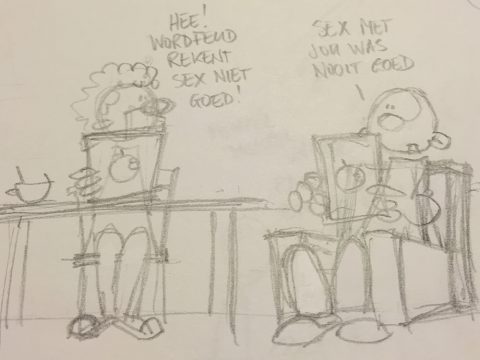 HEE!
WORDFEUD
REKENT
SEX NIET
GOED!
SEX MET
JOU WAS
NOOIT GOED